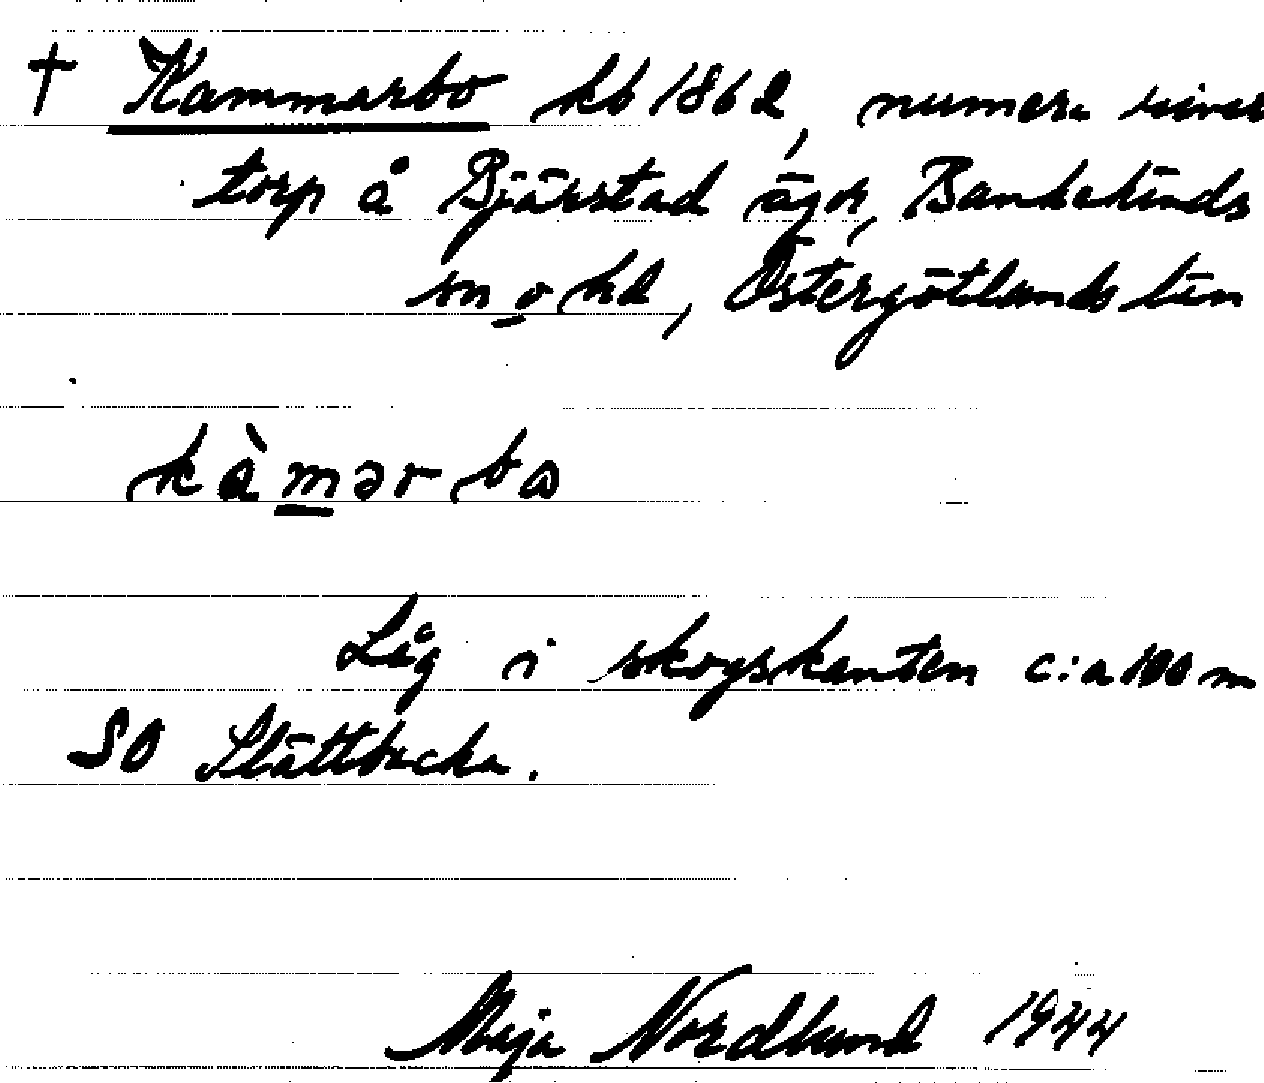 † Kammarbo kb 1862, numera rivet
torp å Bjärstad ägor, Bankekinds
sn o hd, Östergötlands län
kàmərbω
Låg i skogskanten c:a 100 m
SO Slättbacka.
Maja Nordlund 1944